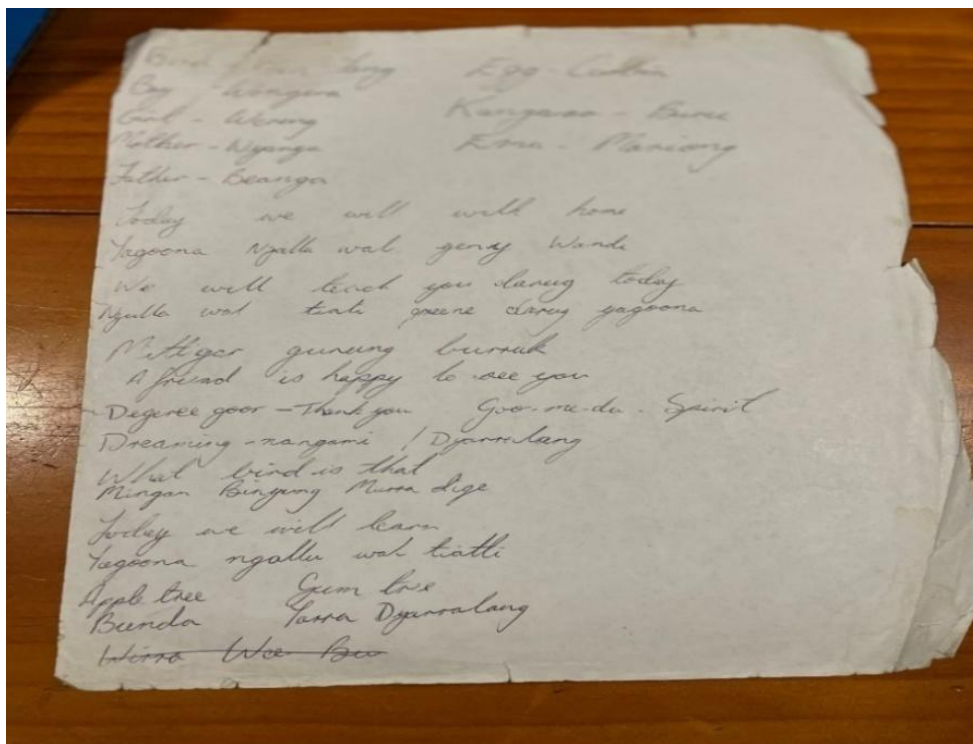 Bird - Egg -
Boy - Wongerra
Girl - Werong Kangaroo - Buru
Mother - Wyanga Emu - Mariong
Father - Beanga
Today we will walk home
Yagoona Ngalla wal yenay Wandi
We will teach you darug today
Ngalla wal tiati darug yagoona
Mittigar gurung burruk
A friend is happy to see you
Degeree goor - Thank you Goor-me-da - Spirit
Dreaming - nangami / Dyarralang
What bird is that
Mingan Binyung Murra dige
Today we will learn
Yagoona ngalla wal tiatli
Apple tree Gum tree
Bunda Yarra Dyarralang
Wirra Wee Bu